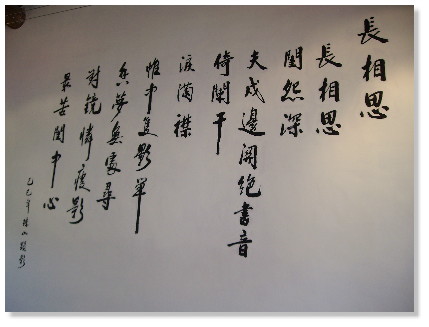 長相思
長相思
閨怨深
夫戍邊關絕書音
倚闌干
淚滿襟
帷中隻影單
香夢無處尋
對鏡憐瘦影
最苦閨中心
乙巳年